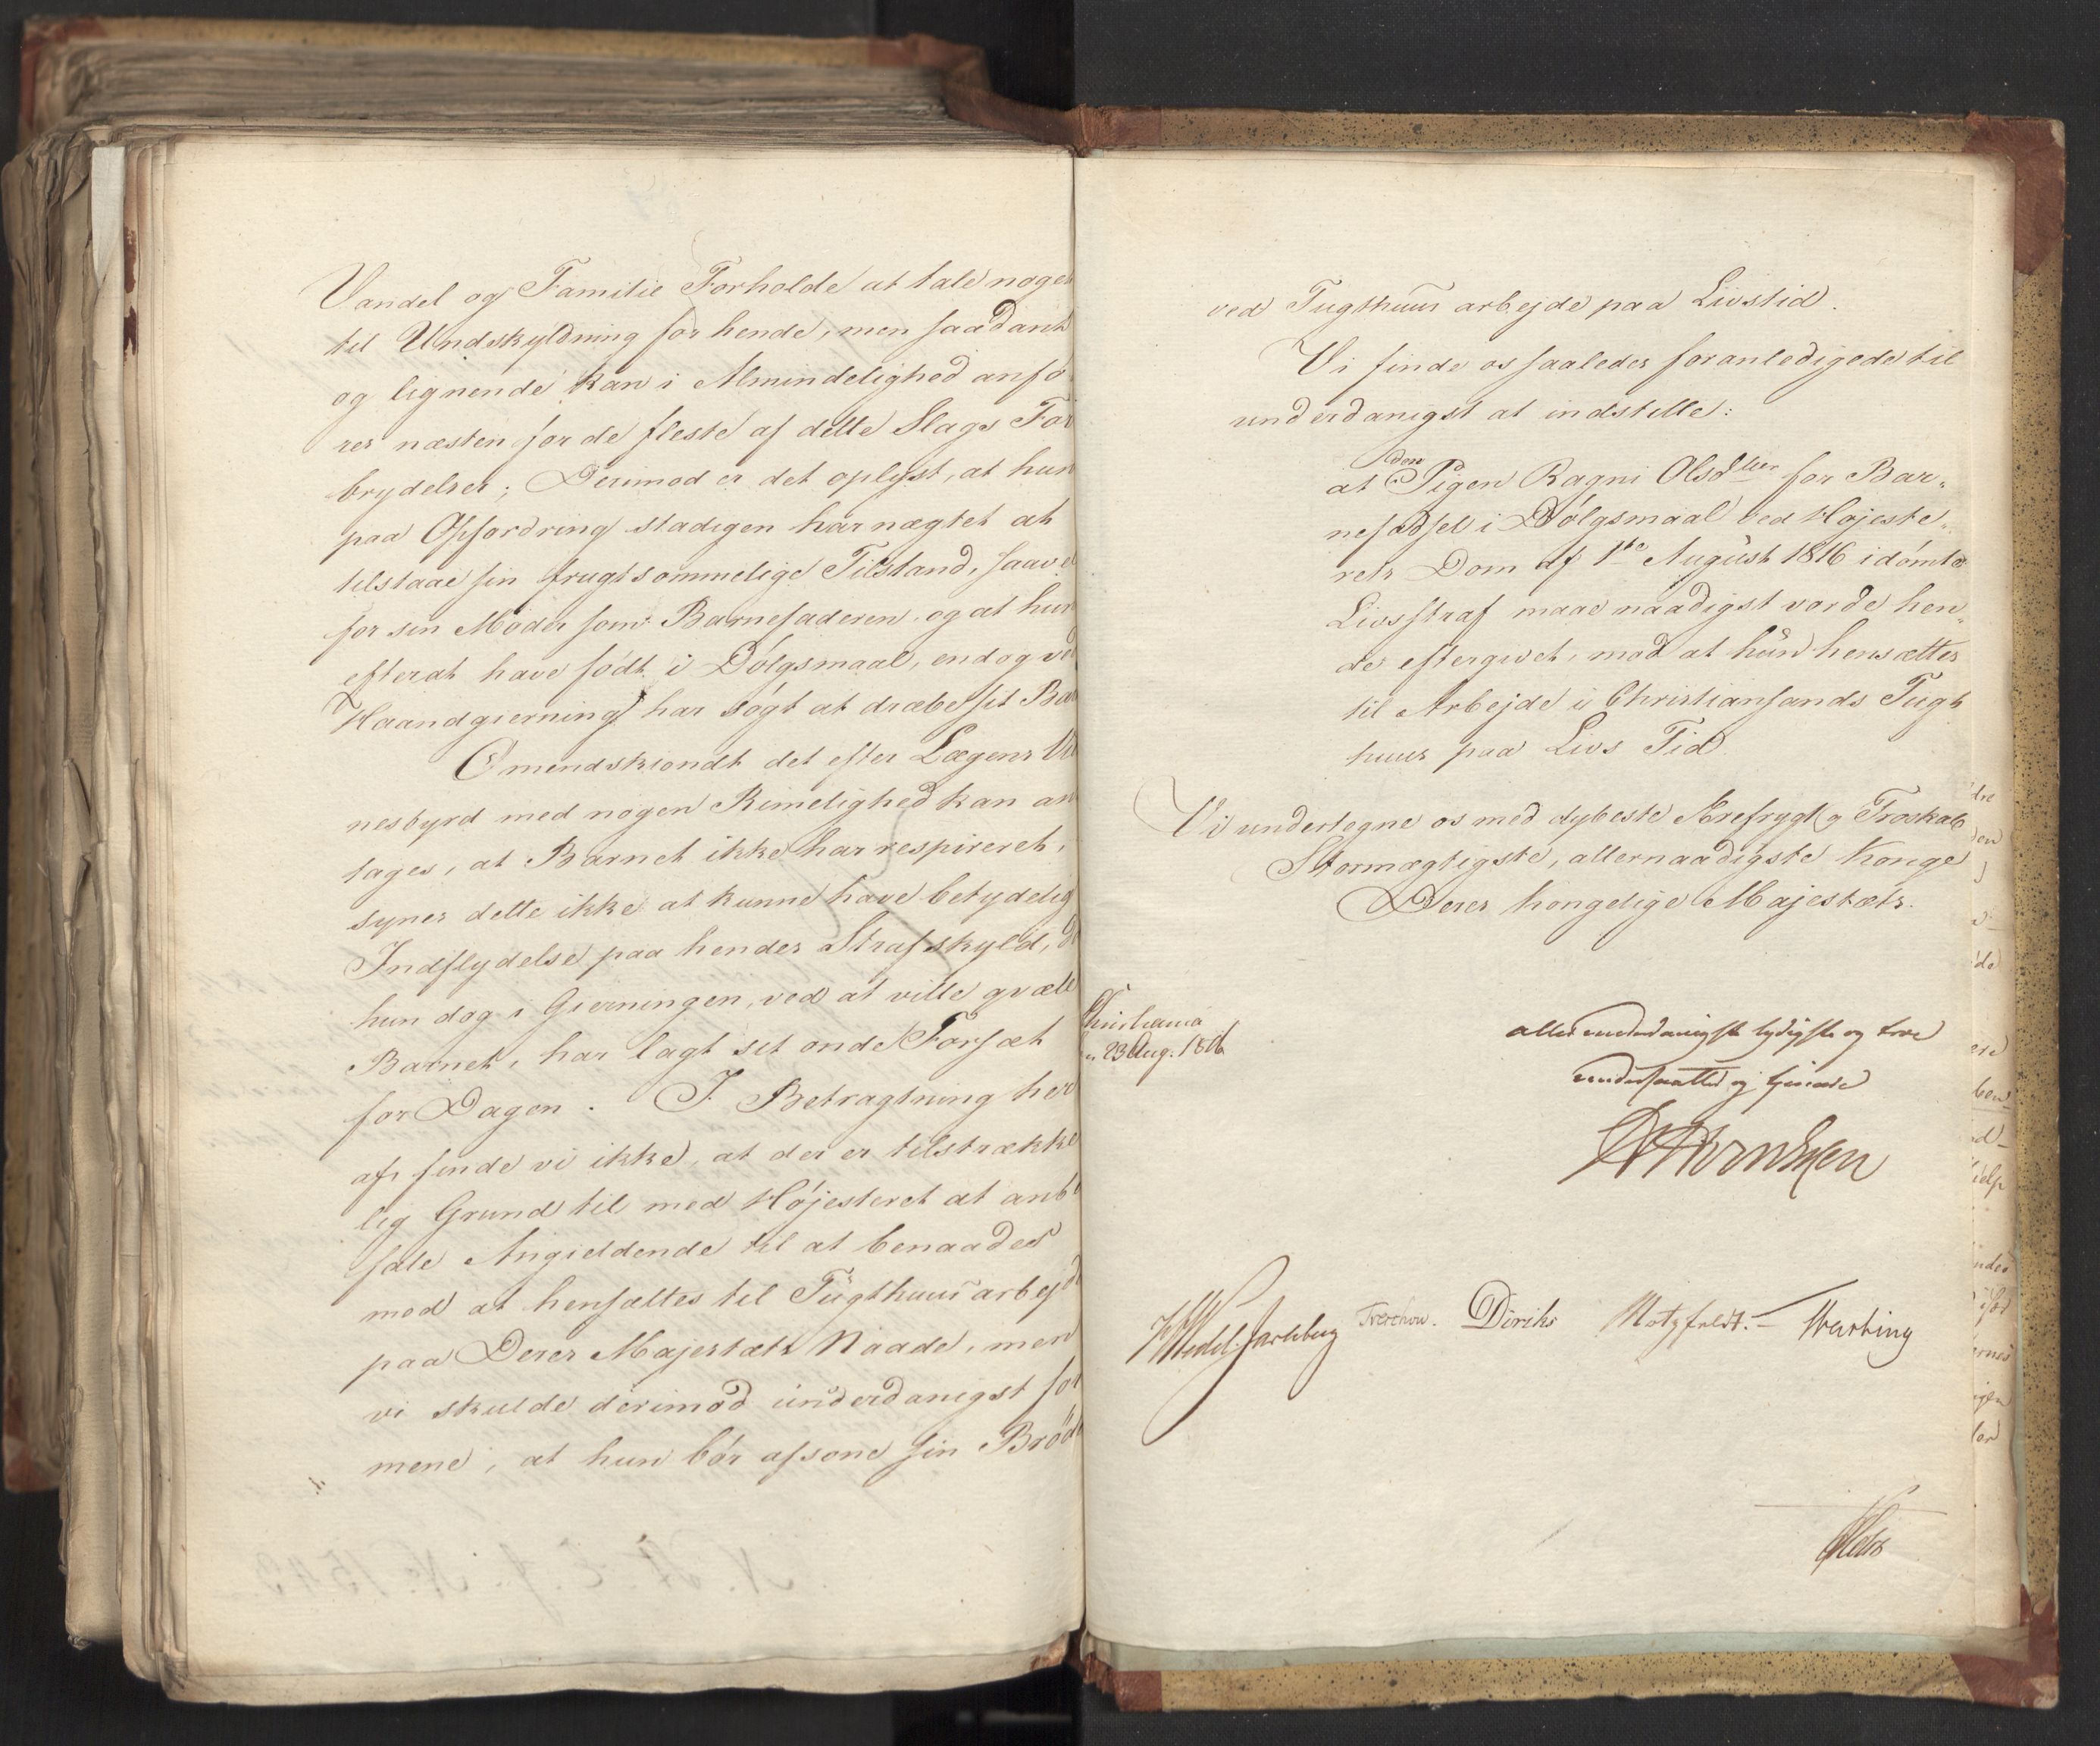 Vandel og Familie Forholde at tale noget
til Undskyldning for hende, men saadant
og lignende kan i Almindelighed anfö-
res næsten for de fleste af dette Slags For
brydelser; Derimod er det oplyst, at hun
paa Opfordring stadigen har nægtet at
tilstaae sin frugtsommelige Tilstand, saavel
for sin Moder som Barnefaderen, og at hun
efter at have födt i Dölgsmaal, endog ved
Haandgierning har sögt at dræbe sit Bar
Omendskiondt det efter Lægens Vid
nesbyrd med nogen Rimelighed kan an
tages, at Barnet ikke har respireret,
synes dette ikke at kunne have betydelig
Indflydelse paa hendes Strafskyld, da
hun dog i Gierningen, ved at ville qvæle
Barnet, har lagt sit onde Forsæt
for Dagen. I Betragtning her
af, finde vi ikke, at der er tilstrække
lig Grund til med Højesteret at anbe
fale Angieldende til at benaades
med at hensættes til Tugthuusarbejde
paa Deres Majestæts Naade, men
vi skulde derimod underdanigst for
mene, at hun bör afsone sin Bröde
ved Tugthuusarbejde paa Livstid.
Vi finde os saaledes foranledigede til
underdanigst at indstille:
at den Pigen Ragni Olsdtter for Bar-
nefødsel i Dölgsmaal ved Højeste-
rets Dom af 1ste August 1816 idömte
Livsstraf maae naadigst vorde hen-
des eftergivet, mod at hun hensættes
til Arbejde i Christiansands Tugt
huus paa Livs Tid.
Vi undertegne os med dybeste Ærefrygt og Troskab
Stormægtigste, allernaadigste Konge
Deres kongelige Majestæts.
Christiania
den 23 Aug. 1816
allerunderdanigste lydigste og troe
undersaatter og tjenere
Wedel Jarlsberg Treschow. Diriks Motzfeldt.